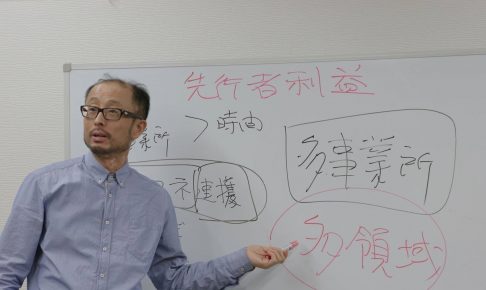 先行者利益
業所 > 時由
多事業所
ネ 連携
多領域